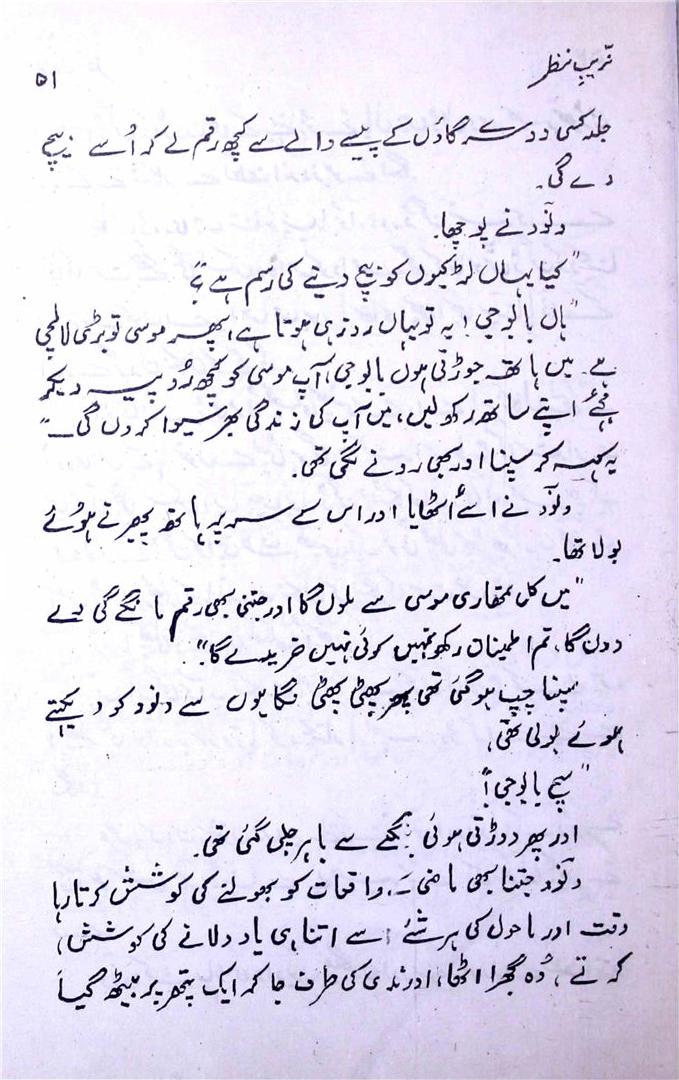 فریبِ نظر
۵۱
جلد کسی دوسرے گاؤں کے پیسے والے سے کچھ رقم لے کر اُسے بیچ
دے گی۔
ونود نے پوچھا۔
"کیا یہاں لڑکیوں کو بیچ دینے کی رسم ہے؟"
"ہاں بابوجی! یہ تو یہاں روز ہی ہوتا ہے، پھر موسی تو بڑی لالچی
ہے۔ میں ہاتھ جوڑتی ہوں بابوجی، آپ موسی کو کچھ روپیہ دیکر
مجھے اپنے ساتھ رکھ لیں، میں آپ کی زندگی بھر سیوا کروں گی۔"
یہ کہہ کر سپنا اور بھی رونے لگی تھی۔
ونود نے اسے اُٹھایا اور اس کے سر پر ہاتھ پھیرتے ہوئے
بولا تھا۔
"میں کل تمھاری موسی سے ملوں گا اور جتنی بھی رقم مانگے گی دے
دوں گا، تم اطمینان رکھو تمہیں کوئی نہیں خریدے گا۔"
سپنا چپ ہو گئی تھی پھر پھٹی پھٹی نگاہوں سے ونود کو دیکھتے
ہوئے بولی تھی،
"سچ بابوجی!"
اور پھر دوڑتی ہوئی بنگلے سے باہر چلی گئی تھی۔
ونود جتنا بھی ماضی کے واقعات کو بھولنے کی کوشش کرتا رہا
وقت اور ماحول کی ہر شئے اسے اتنا ہی یاد دلانے کی کوشش
کرتے، وہ گھبرا اٹھا، اور ندی کی طرف جا کر ایک پتھر پر بیٹھ گیا